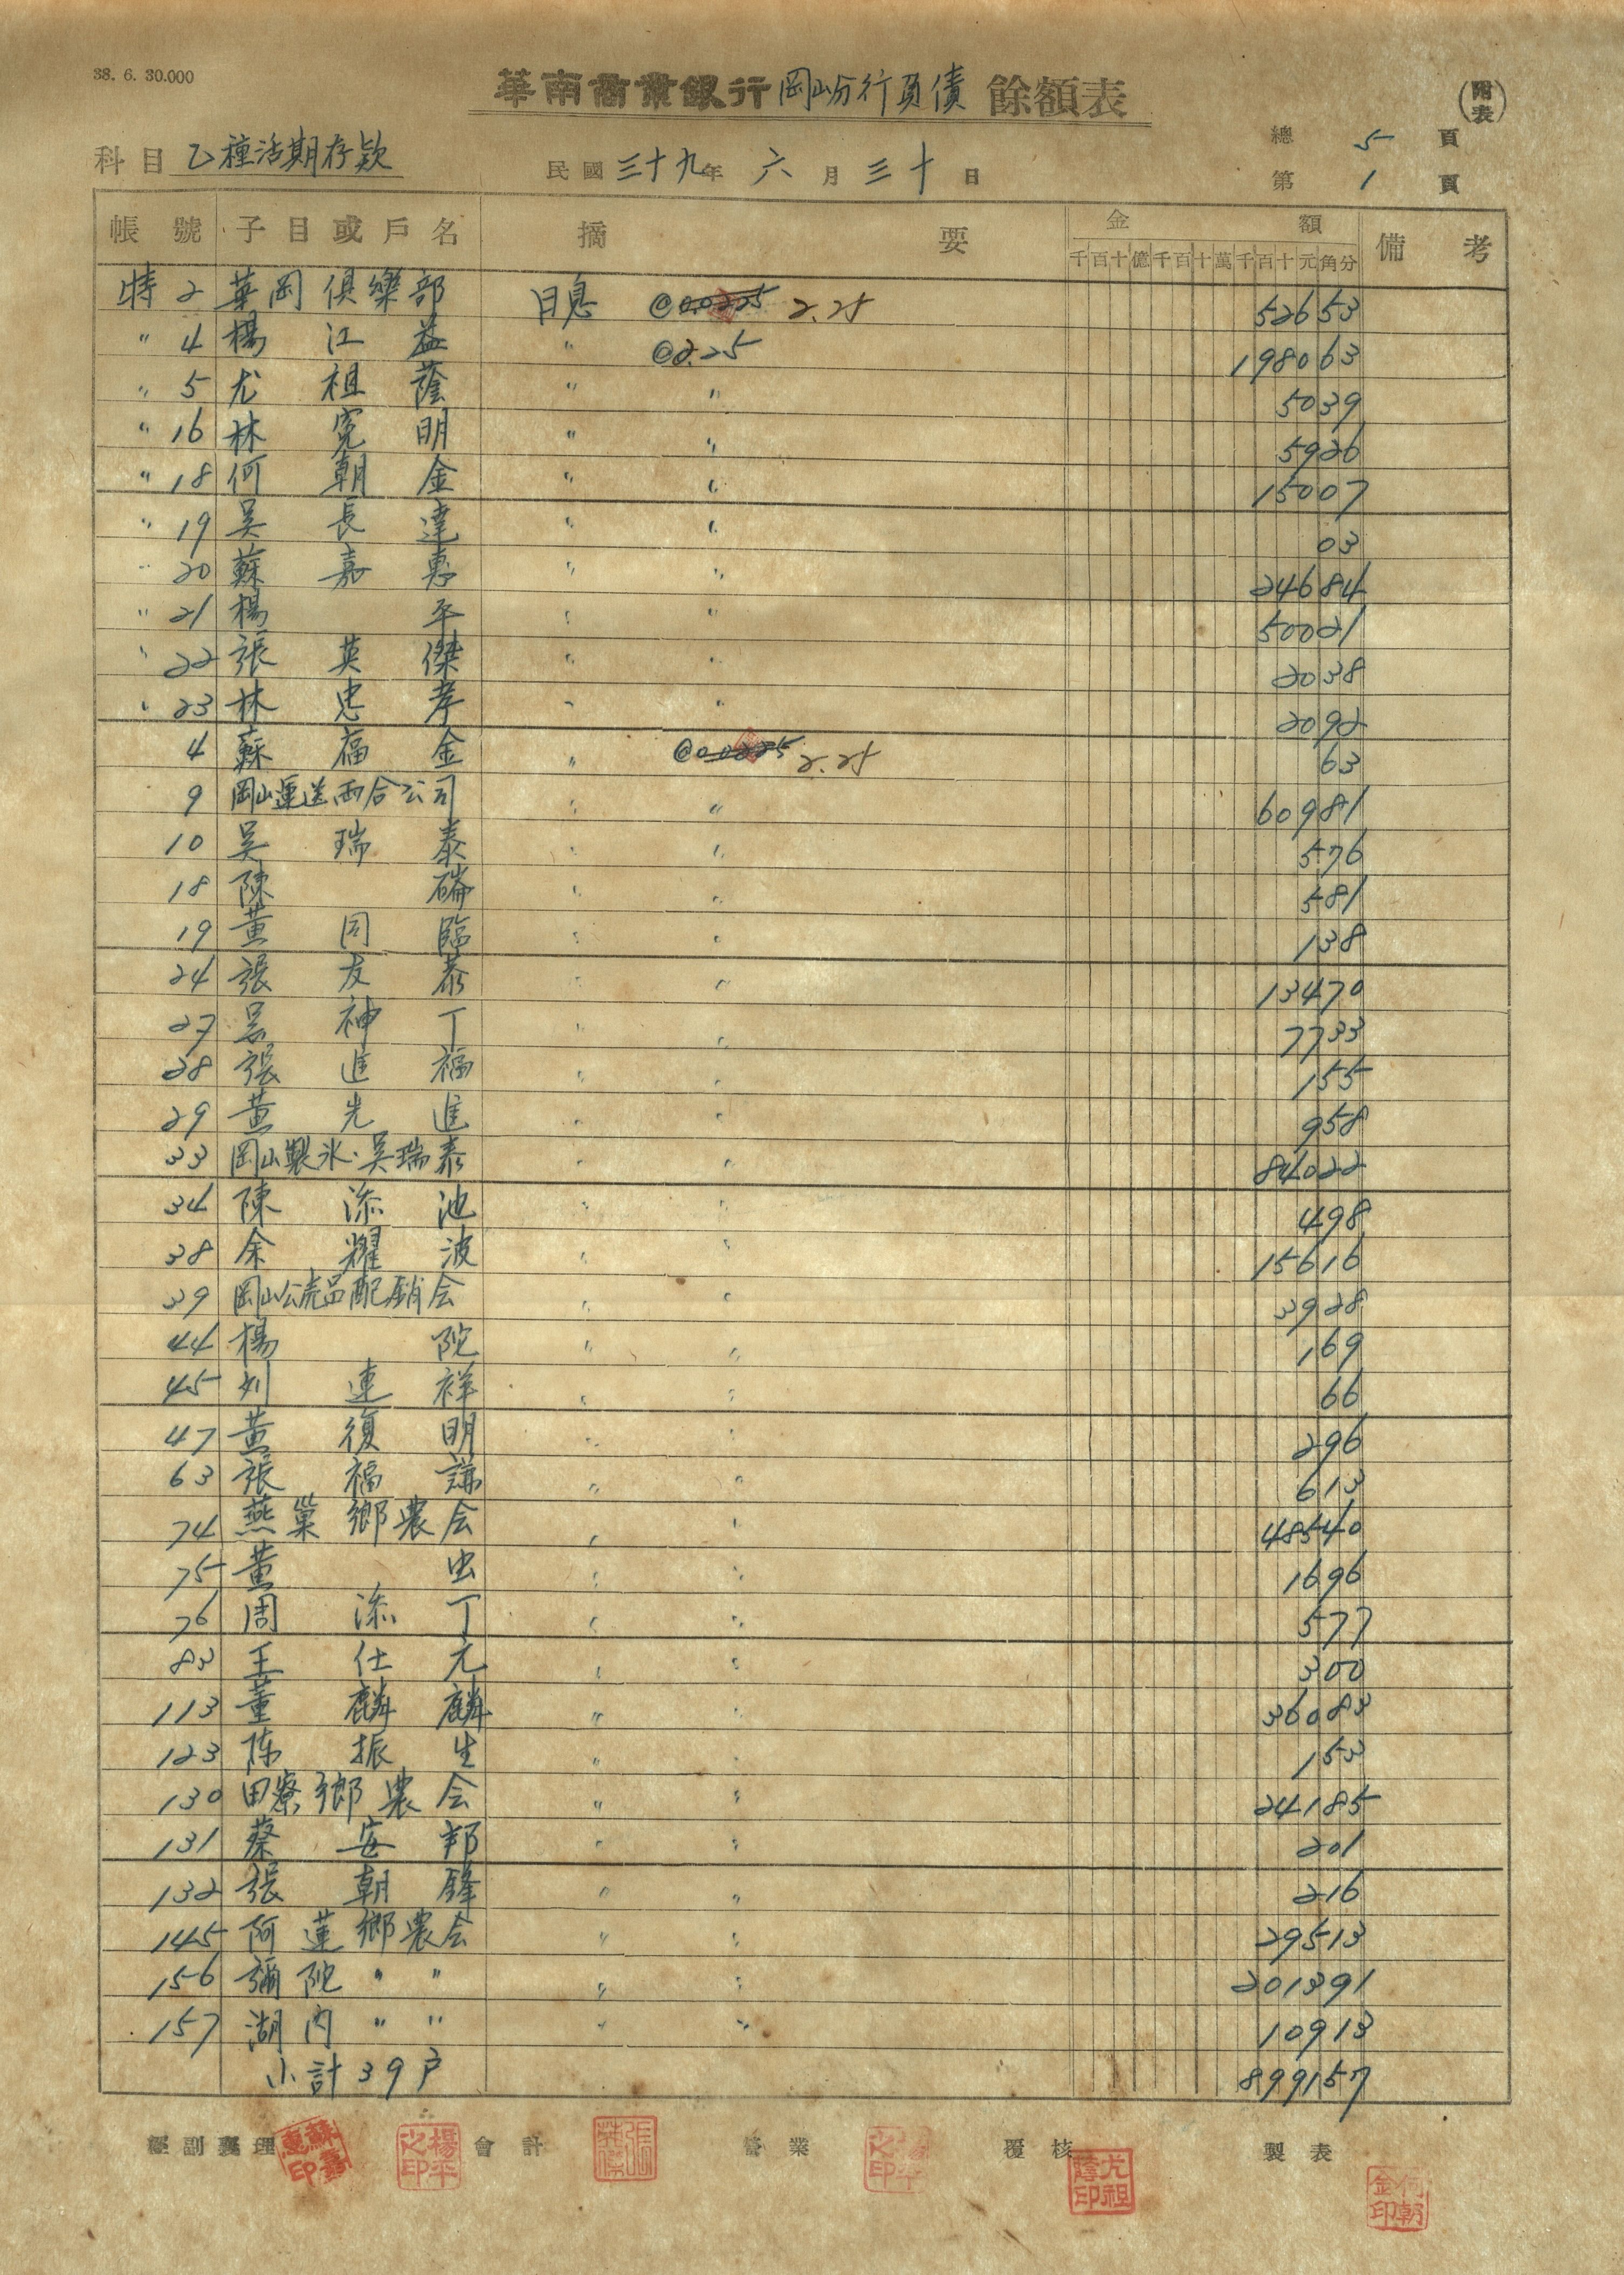 38. 6. 30.000
華南商業銀行岡山分行負債餘額表
(附表)
科目 乙種活期存款 民國三十九年六月三十日
總5頁
第1頁
帳號 子目或戶名 摘要 金額 備考
千百十億千百十萬千百十元角分
特2 華岡俱樂部 日息 @0.0225 2.25 52653
〃4 楊江益 〃 @2.25 198063
〃5 尤祖蔭 〃 〃 5039
〃16 林寬明 〃 〃 5926
〃18 何朝金 〃 〃 15007
〃19 吳長達 〃 〃 03
〃20 蘇嘉惠 〃 〃 24684
〃21 楊平 〃 〃 50021
〃22 張英傑 〃 〃 2038
〃23 林忠孝 〃 〃 2092
4 蘇福金 〃 @0.0225 2.25 63
9 岡山運送西合公司 〃 〃 60981
10 吳瑞泰 〃 〃 576
18 陳 〃 〃 581
19 黃同臨 〃 〃 138
24 張友泰 〃 〃 13470
27 吳神丁 〃 〃 7733
28 張進福 〃 〃 155
29 黃光進 〃 〃 958
33 岡山製氷·吳瑞泰 〃 〃 84022
34 陳添池 〃 〃 498
38 余耀波 〃 〃 15616
39 岡山公売品配銷会 〃 〃 3928
44 楊陀 〃 〃 169
45 刘連祥 〃 〃 66
47 黃復明 〃 〃 296
63 張福謙 〃 〃 613
74 燕巢鄉農会 〃 〃 48540
75 董虫 〃 〃 1696
76 周添丁 〃 〃 577
83 王仕元 〃 〃 300
113 董麟麟 〃 〃 36083
123 陈振生 〃 〃 153
130 田寮鄉農会 〃 〃 24185
131 蔡安邦 〃 〃 201
132 張朝鋒 〃 〃 216
145 阿蓮鄉農会 〃 〃 29513
156 彌陀〃〃 〃 〃 201391
157 湖內〃〃 〃 〃 10913
小計39戶 899157
經副襄理 會計 營業 覆核 製表
蘇嘉惠印 楊平之印 張英傑 楊平之印 尤祖蔭印 何朝金印